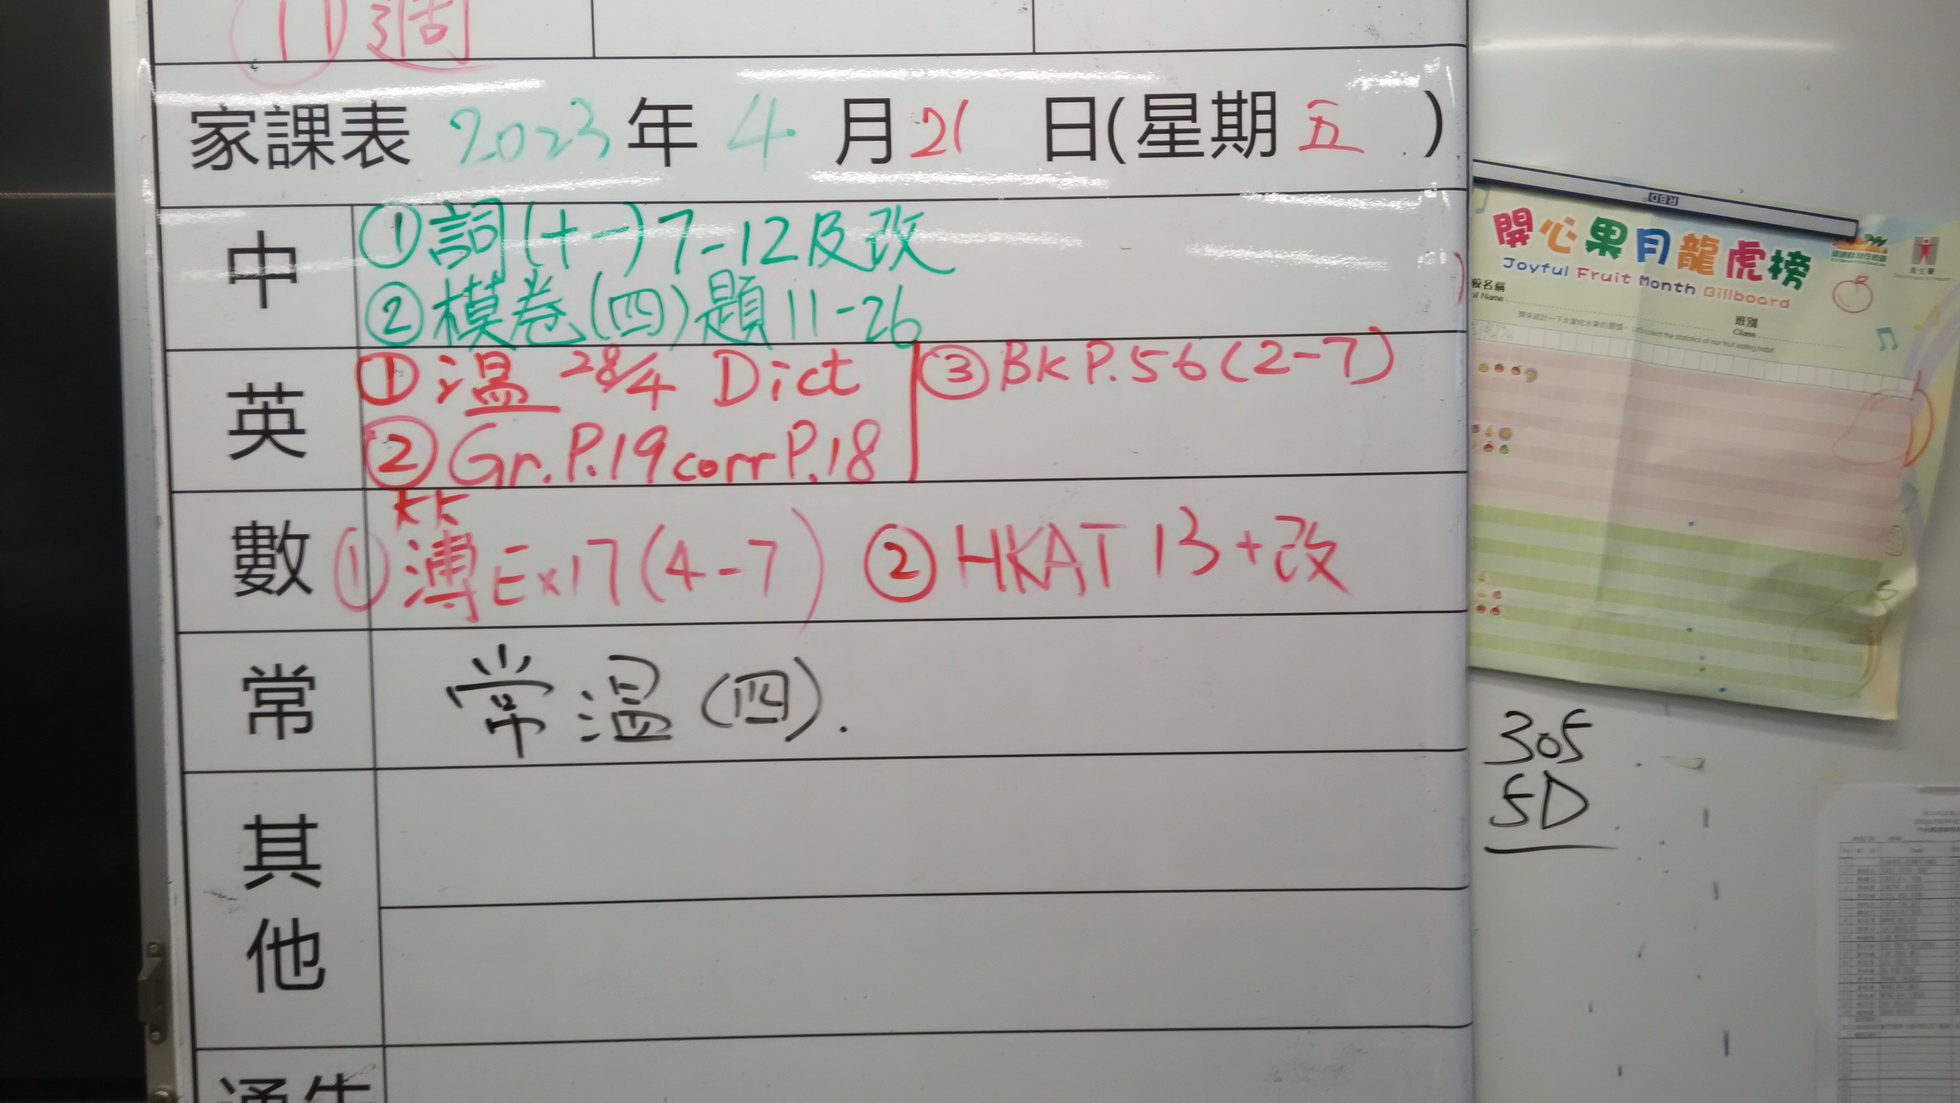 11週
家課表 2023年 4月21日(星期五)
中
①詞(十一)7-12及改
②模卷(四)題11-26
英
①溫 28/4 Dict
②Gr.P.19corrP.18
③BK P.56(2-7)
數
①簿Ex17(4-7) ②HKAT 13+改
常
常溫(四).
其他
通告
RBD
開心果月龍虎榜
Joyful Fruit Month Billboard
班別
Class
305
5D